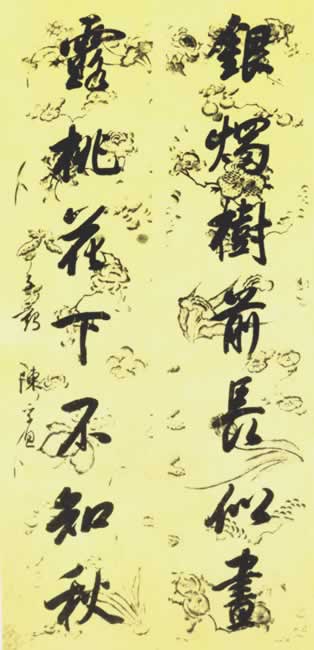 銀燭樹前長似晝
露桃花下不知秋
陳